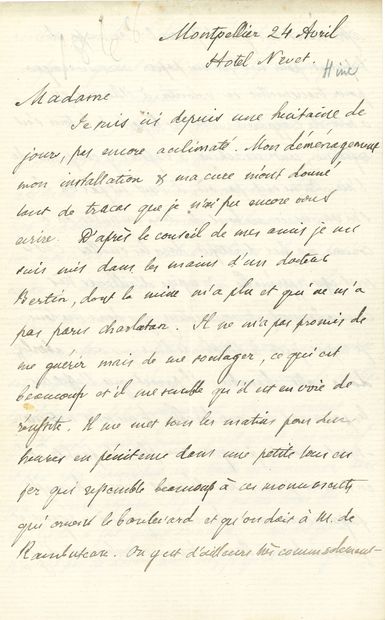 Montpellier 24 Avril
Hotel Nevet.
Madame
Je suis ici depuis une huitaine de
jours, pas encore acclimaté. Mon déménagement
mon installation & ma cure m'ont donné
tant de tracas que je n'ai pu encore vous
écrire. D'après le conseil de mes amis je me
suis mis dans les mains d'un docteur
Bertin, dont la mine m'a plu et qui ne m'a
pas paru charlatan. Il ne m'a pas promis de
me guérir mais de me soulager, ce qui est
beaucoup et il me semble qu'il est en voie de
réussite. Il me met tous les matins pour deux
heures en pénitence dans une petite tour en
fer qui ressemble beaucoup à ces monuments
qui ornent le boulevard et qu'on doit à M. de
Rambuteau. On y est d'ailleurs très commodement